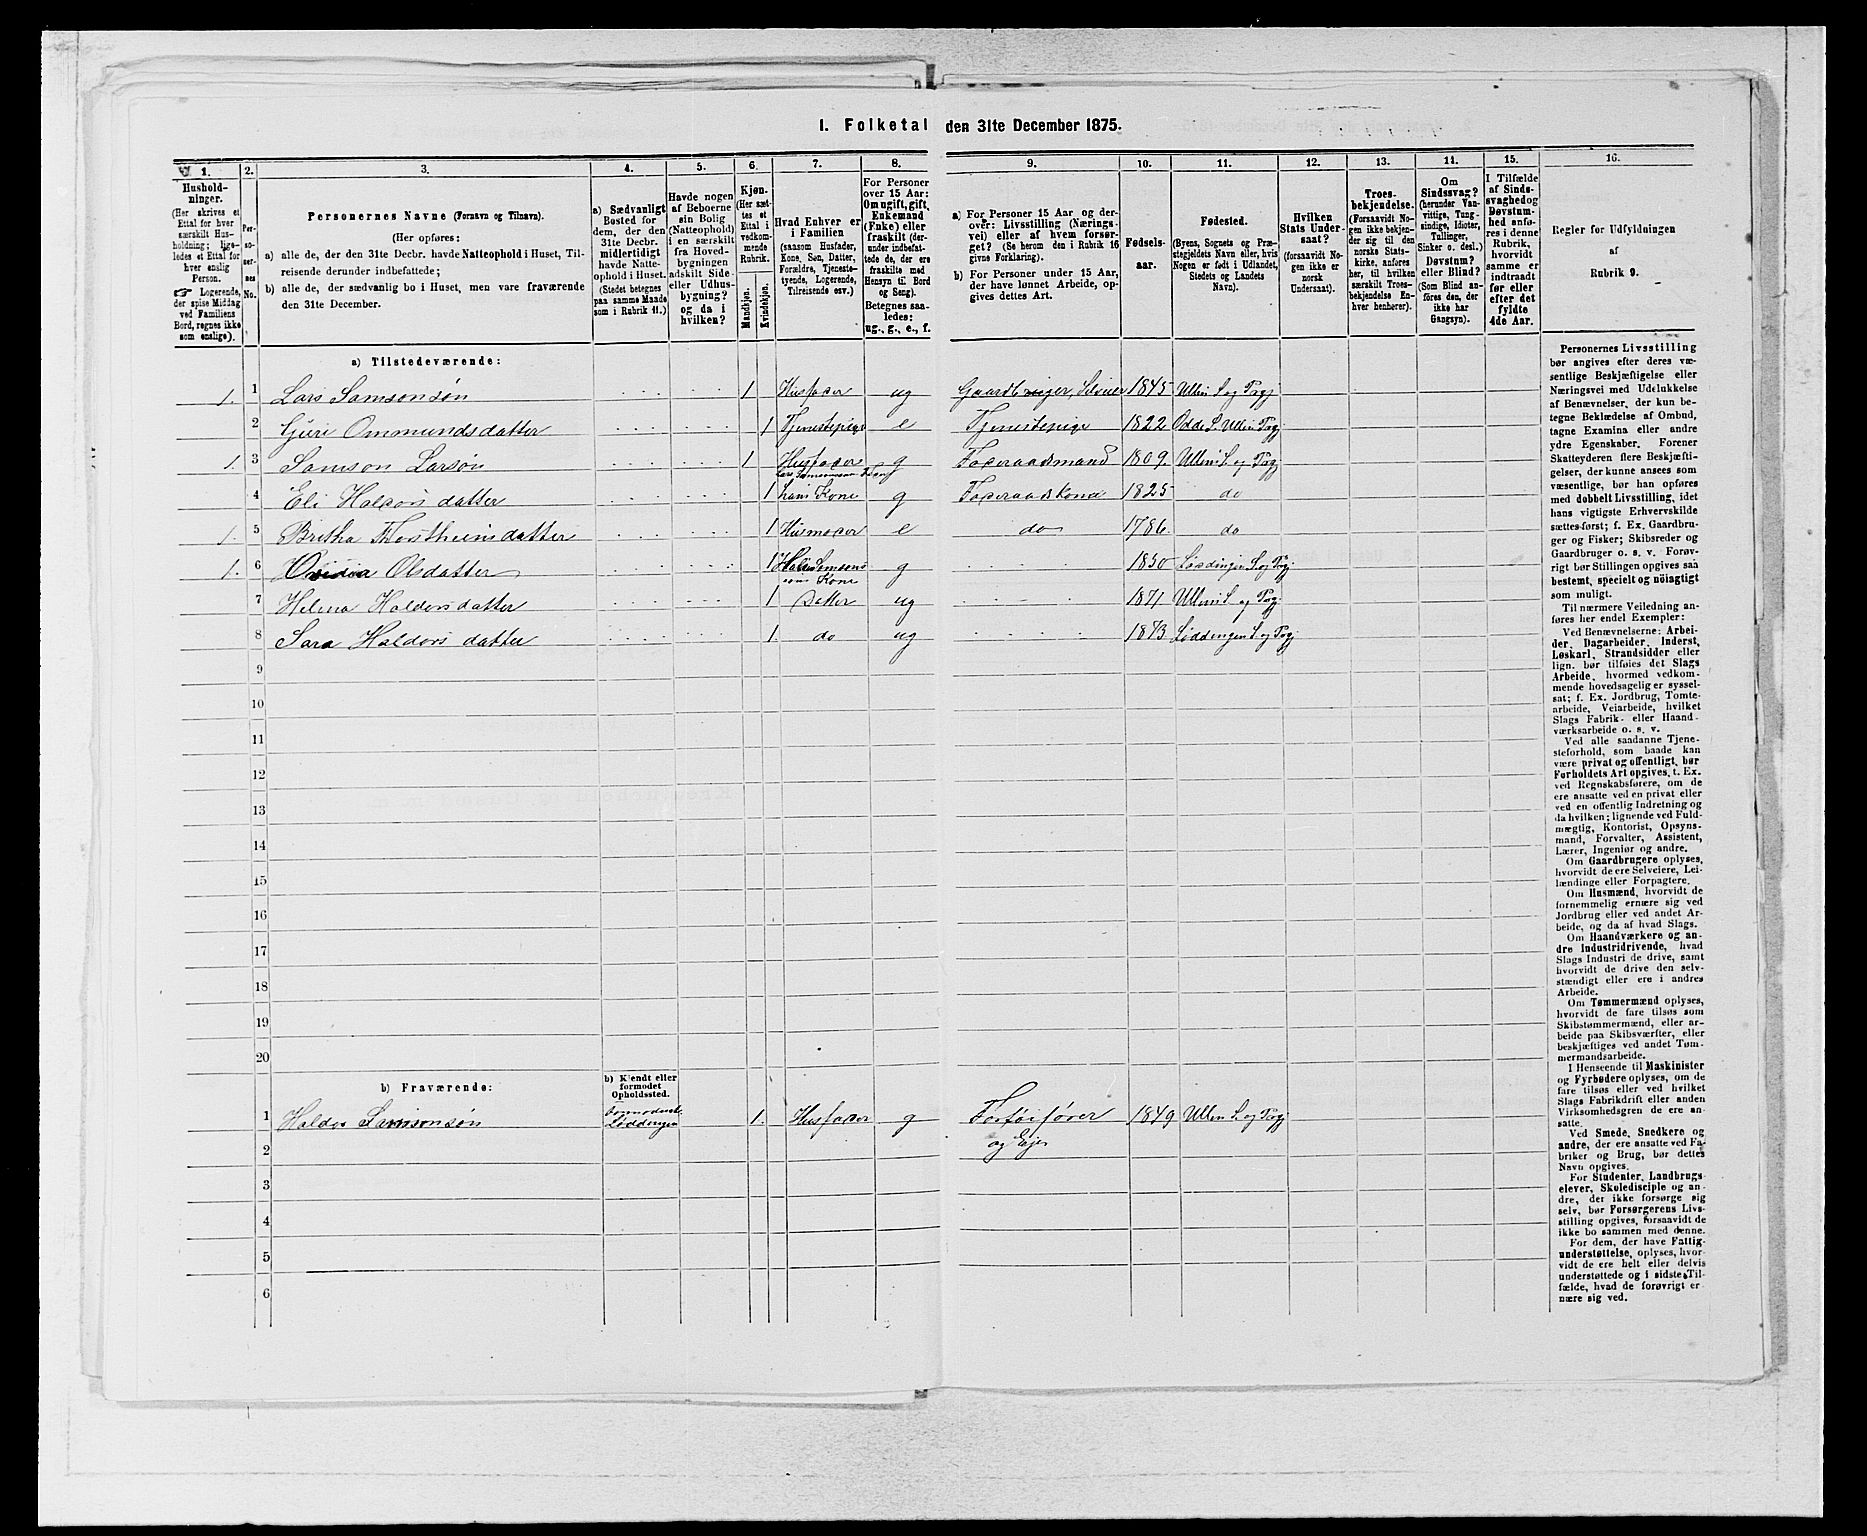 I. Folketal den 31te December 1875.
1. 2. 3. 4. 5. 6. 7. 8. 9. 10. 11. 12. 13. 14. 15. 16.
Hushold-
ninger.
(Her skrives et
Ettal for hver
særskilt Hus-
holdning; lige-
ledes et Ettal for
hver enslig
Person.
☞ Logerende,
der spise Middag
ved Familiens
Bord, regnes ikke
som enslige).
Per-
so-
ner-
nes
No.
Personernes Navne (Fornavn og Tilnavn).
(Her opføres:
a) alle de, der den 31te Decbr. havde Natteophold i Huset, Til-
reisende derunder indbefattede;
b) alle de, der sædvanlig bo i Huset, men vare fraværende
den 31te December.
a) Sædvanligt
Bosted for
dem, der den
31te Decbr.
midlertidigt
havde Natte-
ophold i Huset.
(Stedet betegnes
paa samme Maade
som i Rubrik 11.)
Havde nogen
af Beboerne
sin Bolig
(Natteophold)
i en særskilt
fra Hoved-
bygningen
adskilt Side-
eller Udhus-
bygning?
og da i
hvilken?
Kjøn.
(Her sæt-
tes et
Ettal i
vedkom-
mende
Rubrik.
Mandkjøn.
Kvindekjøn.
Hvad Enhver er
i Familien
(saasom Husfader,
Kone, Søn, Datter,
Forældre, Tjeneste-
tyende, Logerende,
Tilreisende osv.)
For Personer
over 15 Aar:
Om ugift, gift,
Enkemand
(Enke) eller
fraskilt (der-
under indbefat-
tede de, der ere
fraskilte med
Hensyn til Bord
og Seng).
Betegnes saa-
ledes:
ug., g., e., f.
a) For Personer 15 Aar og der-
over: Livsstilling (Nærings-
vei) eller af hvem forsør-
get? (Se herom den i Rubrik 16
givne Forklaring).
b) For Personer under 15 Aar,
der have lønnet Arbeide, op-
gives dettes Art.
Fødsels-
aar.
Fødested.
(Byens, Sognets og Præ-
stegjeldets Navn eller, hvis
Nogen er født i Udlandet,
Stedets og Landets
Navn).
Hvilken
Stats Under-
saat?
(forsaavidt No-
gen ikke er
norsk
Undersaat).
Troes-
bekjendelse.
(Forsaavidt No-
gen ikke bekjen-
der sig til den
norske Stats-
kirke, anføres
her, til hvilken
særskilt Troes-
bekjendelse En-
hver henhører).
Om
Sindssvag?
(herunder Van-
vittige, Tung-
sindige, Idioter,
Tullinger,
Sinker o. desl.)
Døvstum?
eller Blind?
(Som Blind an-
føres den, der
ikke har
Gangsyn).
I Tilfælde
af Sinds-
svaghed og
Døvstum-
hed anfø-
res i denne
Rubrik,
hvorvidt
samme er
indtraadt
før eller
efter det
fyldte
4de Aar.
Regler for Udfyldningen
af
Rubrik 9.
a) Tilstedeværende:
1. 1 Lars Samsonsøn 1 Husfader ug Gaardbruger, Selveier 1845 Ullin S og Prgj
2 Guri Ommundsdatter 1 Tjenestepige e Tjenestepige 1822 Odde S Ullin Prgj
1. 3 Samson Larsøn 1 Husfader g Foderaadsmand 1809. Ullens S. og Prgj
4 Eli Haldorsdatter 1 hans Kone g Foderaadskone 1825 do
1. 5 Britha Thostheinsdatter 1 Husmoder e do 1786. do
1. 6 Ovidia Olsdatter 1 Haldor Samsons g 1850 Løddingen S og Prgj
søns Kone
7 Helena Haldorsdatter 1 Datter ug 1871 Ullens S. og Prgj.
8 Sara Haldorsdatter 1. do ug 1873 Løddingen S og Prgj
9
10
11
12
13
14
15
16
17
18
19
20
b) Fraværende:
b) Kjendt eller
formodet
Opholdssted.
1 Haldor Samsonsøn Formodentl. Løddingen 1. Husfader g 1849 Ullen S. og Prgj.
og Ejer
2
3
4
5
6
Personernes Livsstilling
bør angives efter deres væ-
sentlige Beskjæftigelse eller
Næringsvei med Udelukkelse
af Benævnelser, der kun be-
tegne Beklædelse af Ombud,
tagne Examina eller andre
ydre Egenskaber. Forener
Skatteyderen flere Beskjæfti-
gelser, der kunne ansees som
væsentlige, bør han opføres
med dobbelt Livsstilling, idet
hans vigtigste Erhvervskilde
sættes først; f. Ex. Gaardbru-
ger og Fisker; Skibsreder og
Gaardbruger o. s. v. Forøv-
rigt bør Stillingen opgives saa
bestemt, specielt og nöiagtigt
som muligt.
Til nærmere Veiledning an-
føres her endel Exempler:
Ved Benævnelserne: Arbei-
der, Dagarbeider, Inderst,
Løskarl, Strandsidder eller
lign. bør tilføies det Slags
Arbeide, hvormed vedkom-
mende hovedsagelig er syssel-
sat; f. Ex. Jordbrug, Tomte-
arbeide, Veiarbeide, hvilket
Slags Fabrik- eller Haand-
værksarbeide o. s. v.
Ved alle saadanne Tjene-
steforhold, som baade kan
være privat og offentligt, bør
Forholdets Art opgives, t. Ex.
ved Regnskabsførere, om de
ere ansatte ved en privat eller
ved en offentlig Indretning og
da hvilken; lignende ved Fuld-
mægtig, Kontorist, Opsyns-
mand, Forvalter, Assistent,
Lærer, Ingeniør og andre.
Om Gaardbrugere oplyses,
hvorvidt de ere Selveiere, Lei-
lændinge eller Forpagtere.
Om Husmænd, hvorvidt de
fornemmelig ernære sig ved
Jordbrug eller ved andet Ar-
beide, og da af hvad Slags.
Om Haandværkere og an-
dre Industridrivende, hvad
Slags Industri de drive, samt
hvorvidt de drive den selv-
stændigt eller ere i andres
Arbeide.
Om Tømmermænd oplyses,
hvorvidt de fare tilsøs som
Skibstømmermænd, eller ar-
beide paa Skibsværfter, eller
beskjæftiges ved andet Tøm-
mermandsarbeide.
I Henseende til Maskinister
og Fyrbødere oplyses, om de
fare tilsøs eller ved hvilket
Slags Fabrikdrift eller anden
Virksomhedsgren de ere an-
satte.
Ved Smede, Snedkere og
andre, der ere ansatte ved Fa-
briker og Brug, bør dettes
Navn opgives.
For Studenter, Landbrugs-
elever, Skoledisciple og an-
dre, der ikke forsørge sig
selv, bør Forsørgerens Livs-
stilling opgives, forsaavidt de
ikke bo sammen med denne.
For dem, der have Fattig-
understøttelse, oplyses, hvor-
vidt de ere helt eller delvis
understøttede og i sidste Til-
fælde, hvad de forøvrigt er-
nære sig ved.